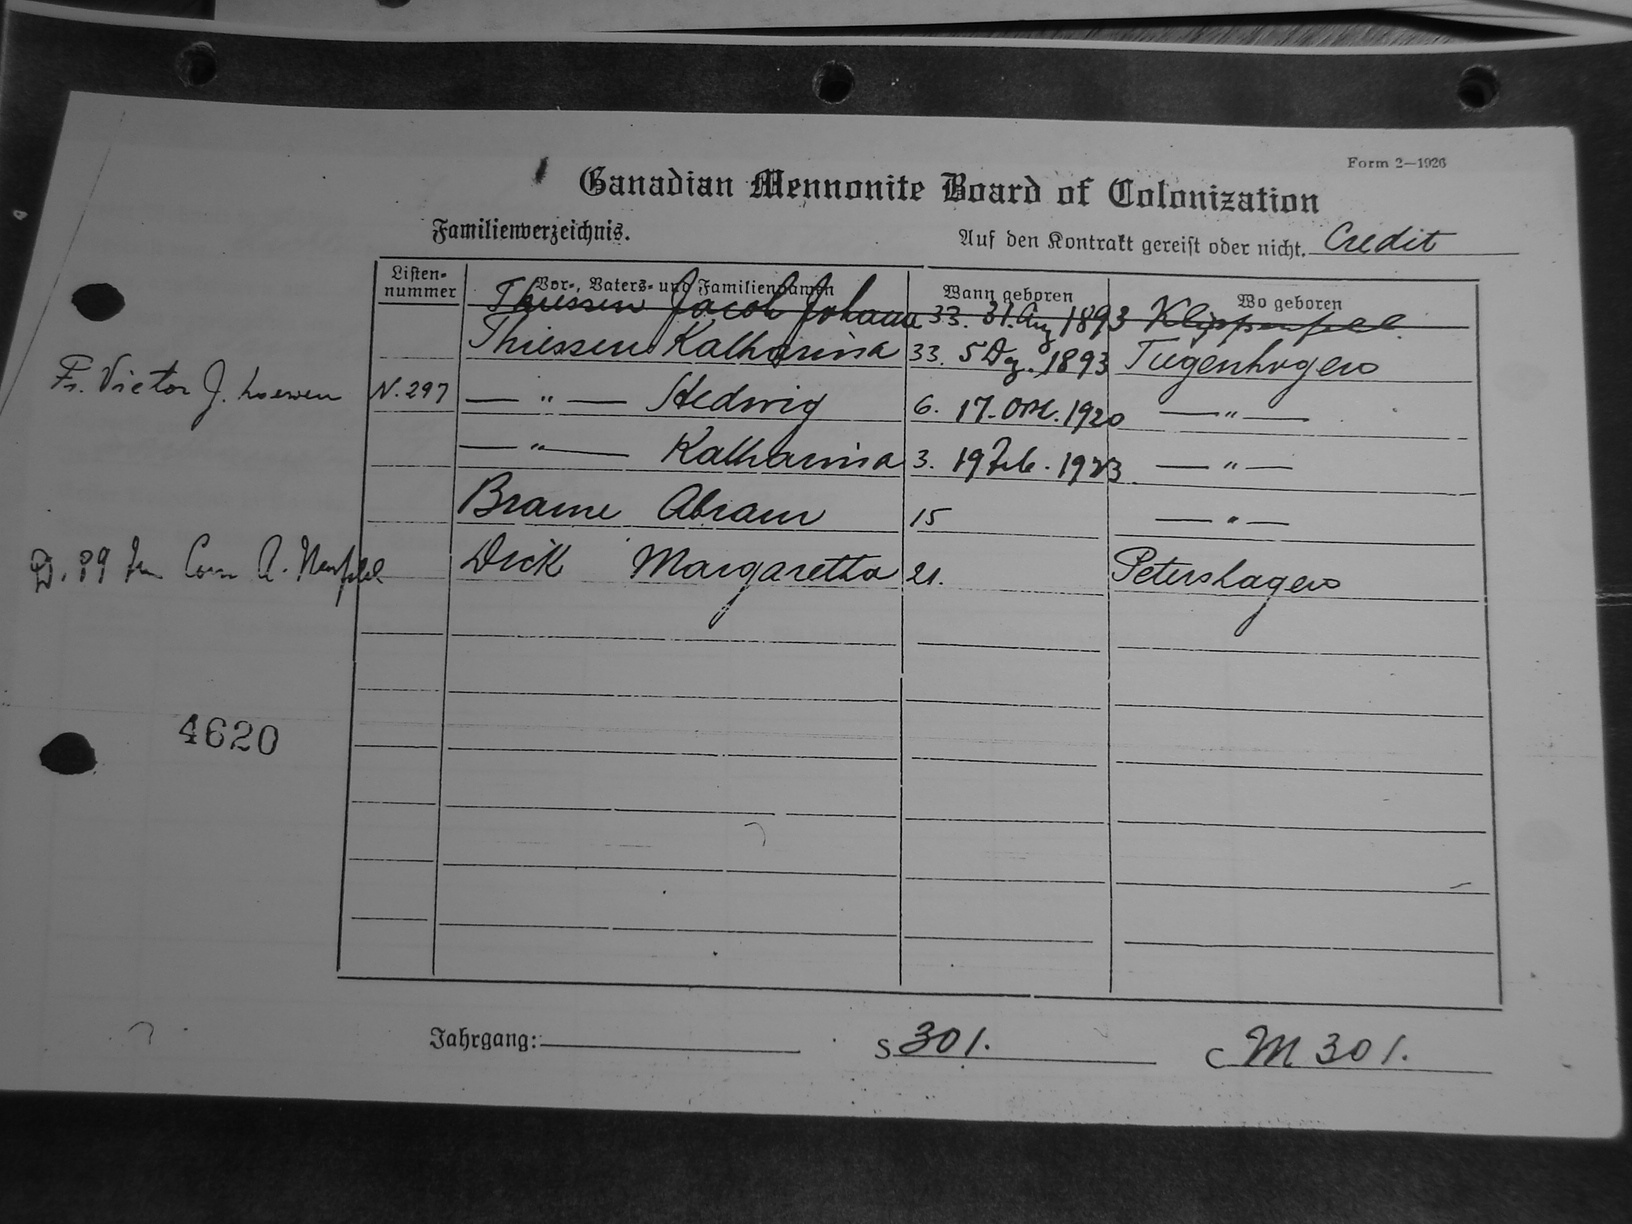 Form 2—1926
Canadian Mennonite Board of Colonization
Familienverzeichnis.
Auf den Kontrakt gereist oder nicht. Credit
Listen-nummer Vor-, Vaters- und Familiennamen Wann geboren Wo geboren
Thiessen Jacob Johann 33. 31. Aug 1893 Klippenfeld.
Thiessen Katharina 33. 5 Dez. 1893 Tiegenhagen
Fr. Victor J. Loewen N. 297 — " — Hedwig 6. 17. Okt. 1920 — " —
— " — Katharina 3. 19 Feb. 1923 — " —
Braune Abram 15 — " —
D. 89 A. Dick Margaretha 21. Petershagen
4620
Jahrgang: S 301. C M 301.